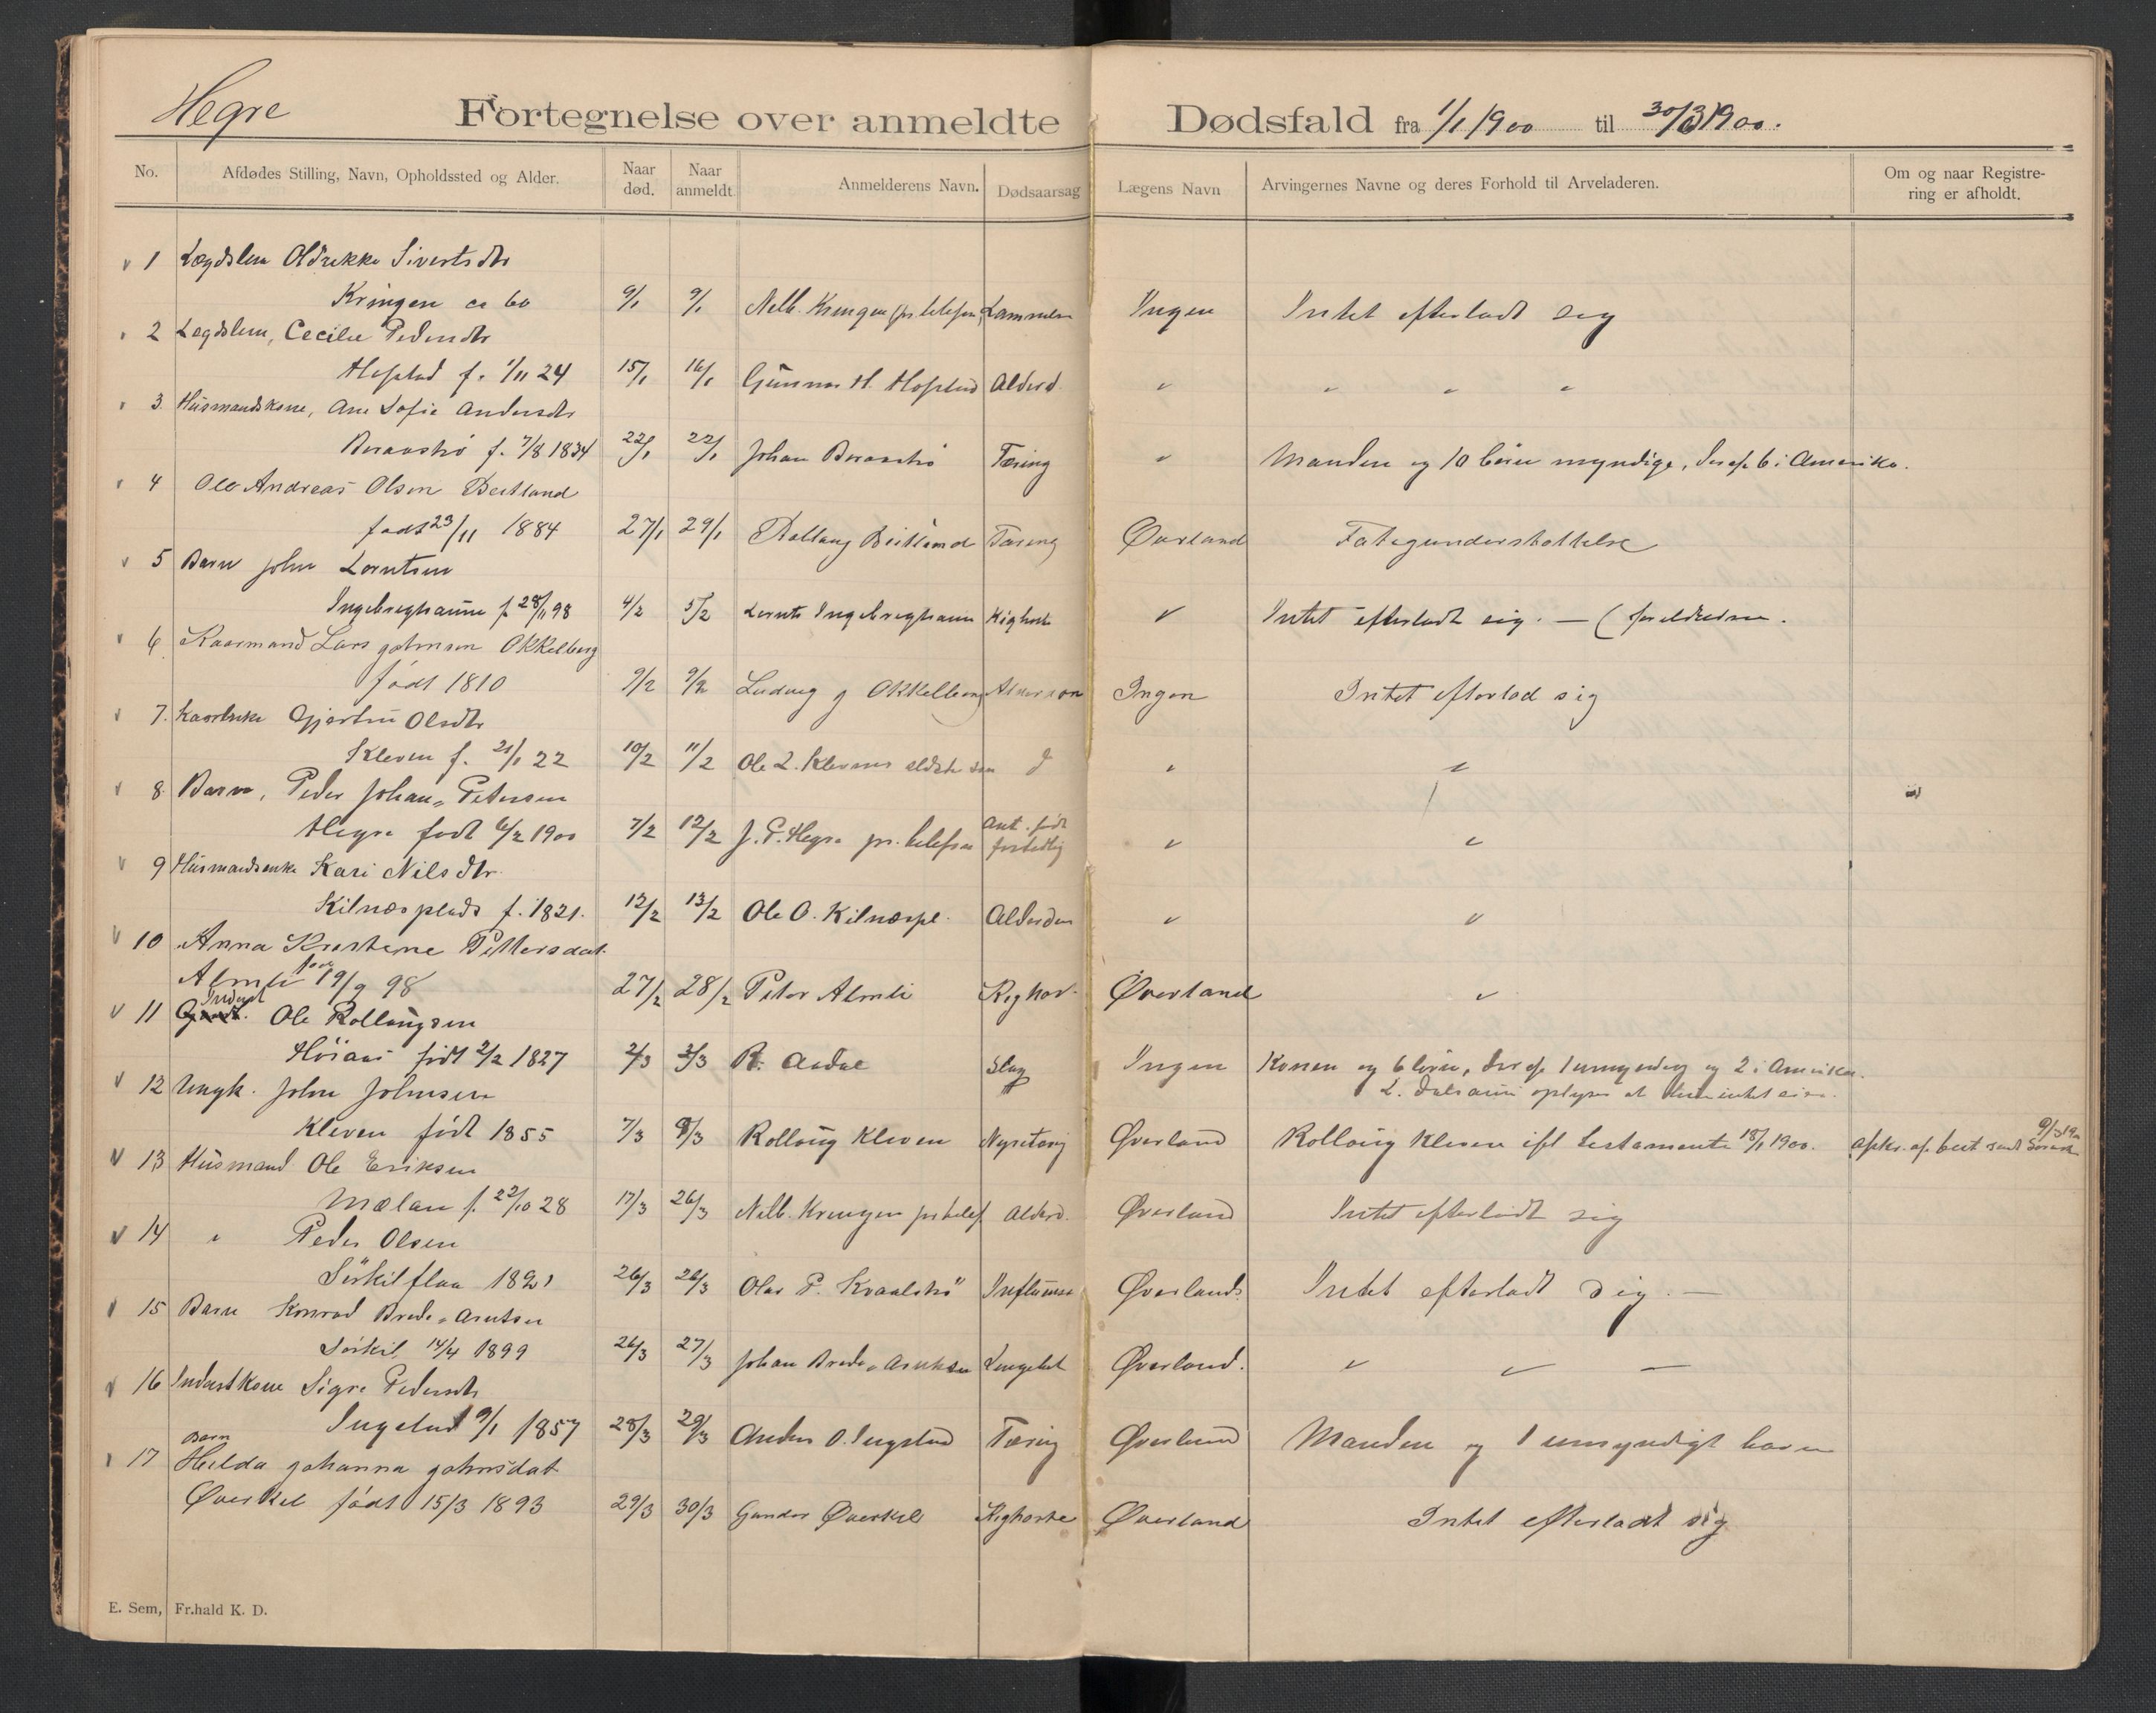 Hegre
Fortegnelse over anmeldte Dødsfald fra 1/1 1900 til 30/3 1900.
No. Afdødes Stilling, Navn, Opholdssted og Alder. Naar død. Naar anmeldt. Anmelderens Navn. Dødsaarsag Lægens Navn Arvingernes Navne og deres Forhold til Arveladeren. Om og naar Registrering er afholdt.
1 Lægdslem Oldrekke Sivertsdtr
Kringen ca 60 9/1 9/1 Kringen pr. telefon Ingen Intet efterladt sig
2 Lægdslem, Cecilie Pedersdtr
Hofstad f. 1/11 24 15/1 16/1 Gunnar H. Hofstad Alderd. " " " "
3 Husmandskone, Ane Sofie Andersdtr
f. 7/8 1834 22/1 22/1 Johan Tæring " Manden og 10 børn myndige, deraf 6 i Amerika.
4 Ole Andreas Olsen Beitland
født 23/11 1884 27/1 29/1 Rollaug Beitland Tæring Øverland Fatigunderstøttelse
5 Barn John Lorntsen
f. 28/11 98 4/2 5/2 Lornts Kighoste " Intet efterladt sig. — (forældrene.
6 Kaarmand Lars Johnsen Okkelberg
født 1810 9/2 9/2 Ludvig J Okkelberg Alderdom Ingen Intet efterlad sig
7. Gjertru Olsdtr
Kleven f. 21/1 22 10/2 11/2 Ole L. Klevens ældste søn d " "
8 Barn, Peder Johan Petersen
Hegre født 6/2 1900 7/2 12/2 J. P. Hegre pr. telefon " "
9 Husmandsenke Kari Nilsdtr.
Kilnæsplads f. 1821. 12/2 13/2 Ole O. Kilnæspl. Alderdom " "
10 Anna Kristene Pettersdat.
Almli født 19/9 98 27/2 28/2 Peter Almli Kighos. Øverland "
11 Inderst Ole Rollaugsen
Høiaas født 2/2 1827 2/3 3/3 R. Aasdal Slag Ingen Konen og 6 børn, deraf 1 umyndig og 2 i Amerika.
oplyser at
12 Ungk. John Johnsen
Kleven født 1855 7/3 8/3 Rollaug Kleven Øverland Rollaug Kleven ifl testamente 18/1 1900. 9/3 1900
13 Husmand Ole Eriksen
Mælan f. 22/10 28 17/3 26/3 Kringen pr telef. Alderd. Øverland Intet efterladt sig
14 " Peder Olsen
Sørkilflaa 1821 26/3 26/3 Olav P. Influensa Øverland Intet efterladt sig. —
15 Barn Konrad Brede Arntsen
Sørkil 14/4 1899 26/3 27/3 Johan Brede Arntsen Øverland. " " —
16 Inderstkone Sigri Pedersdtr
Ingstad 9/1 1857 28/3 29/3 Anders O. Ingstad Tæring Øverland Manden og 1 umyndigt barn
17 Barn Hilda Johanna Johnsdat
Øverkil født 15/3 1893 29/3 30/3 Gunder Øverkil Kighoste Øverland Intet efterladt sig
E. Sem, Fr.hald K. D.